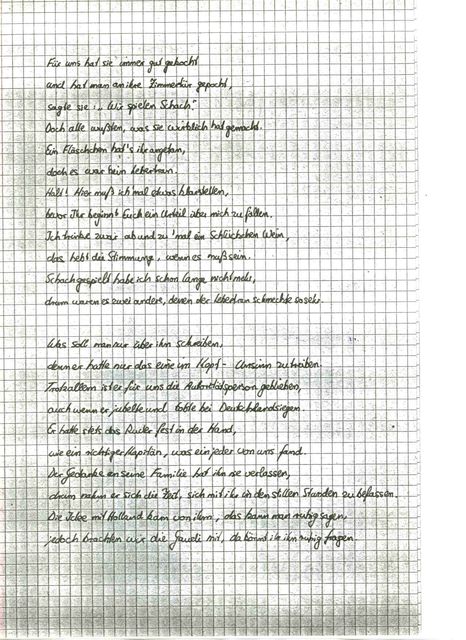 Für uns hat sie immer gut gekocht
und hat man an ihre Zimmertür gepocht,
sagte sie: „Wir spielen Schach."
Doch alle wußten, was sie wirklich hat gemacht.
Ein Fläschchen hat's ihr angetan,
doch es war kein Lebertran.
Halt! Hier muß ich mal etwas klarstellen,
bevor Ihr beginnt Euch ein Urteil über mich zu fällen.
Ich trinke zwar ab und zu 'mal ein Schlückchen Wein,
das hebt die Stimmung, wenn es muß sein.
Schach gespielt habe ich schon lange nicht mehr,
drum waren es zwei andere, denen der Lebertran schmeckte so sehr.
Was soll man nur über ihn schreiben,
denn er hatte nur das eine im Kopf - Unsinn zu treiben.
Trotz allem ist er für uns die Autoritätsperson geblieben,
auch wenn er jubelte und tobte bei Deutschlandsiegen.
Er hatte stets das Ruder fest in der Hand,
wie ein richtiger Kapitän, was ein jeder von uns fand.
Der Gedanke an seine Familie hat ihn nie verlassen,
drum nahm er sich die Zeit, sich mit ihr in den stillen Stunden zu befassen.
Die Idee mit Holland kam von ihm, das kann man ruhig sagen,
jedoch brachten wir die Gaudi mit, da könnt ihr ihn ruhig fragen.